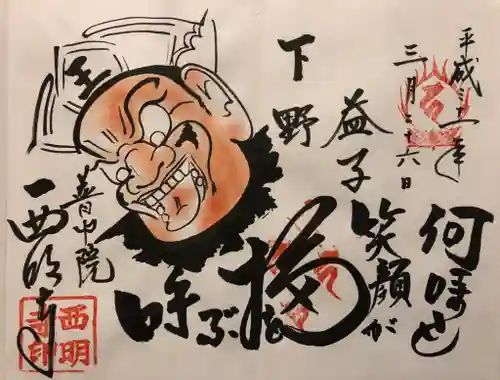 平成三十一年
三月二十六日
下野
益子
何時も
笑顔が
福を
呼ぶ
王
普門院
西明寺
西明
寺印